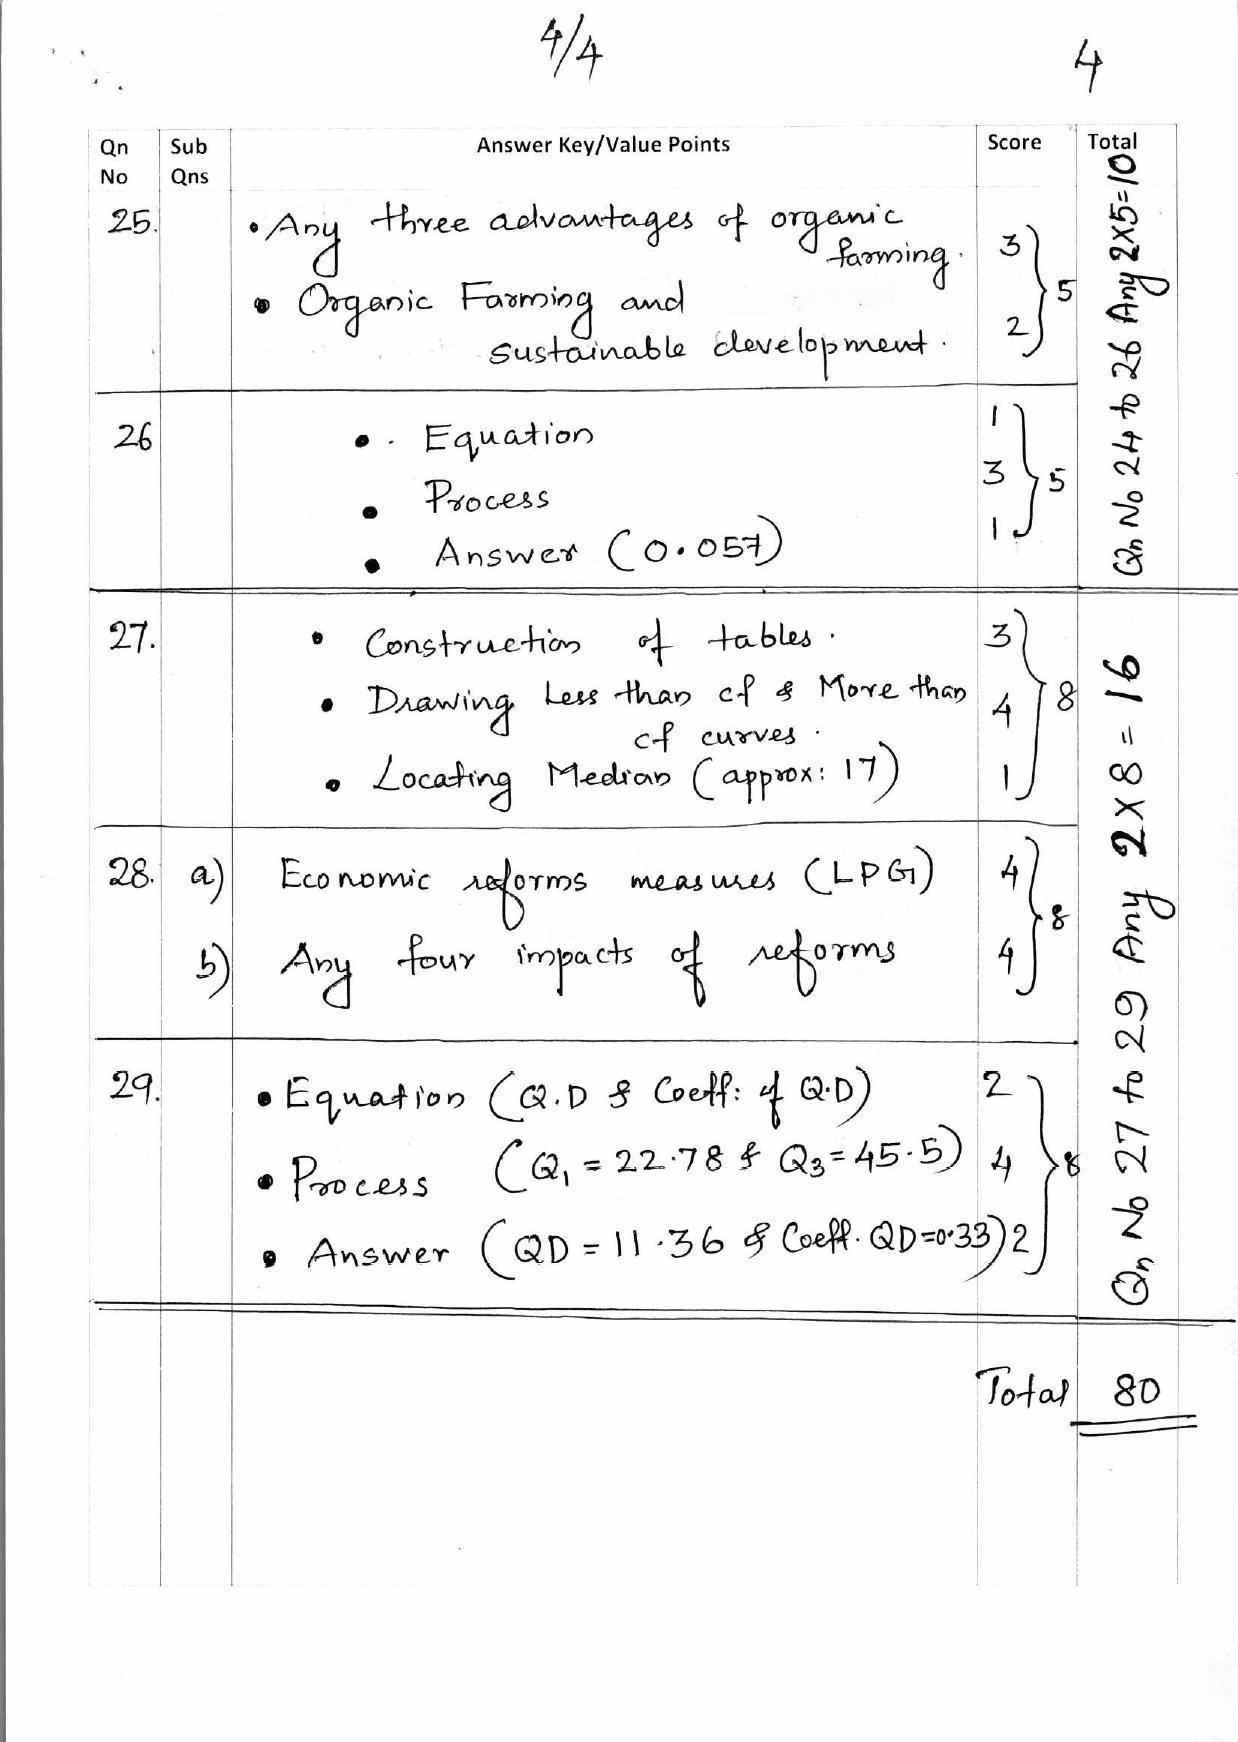 4/4
4
Qn No
Sub Qns
Answer Key/Value Points
Score
Total
25.
• Any three advantages of organic
farming.
3
• Organic Farming and
sustainable development.
2
5
26
• Equation
1
• Process
3
• Answer (0.057)
1
5
Qn No 24 to 26 Any 2x5=10
27.
• Construction of tables.
3
• Drawing Less than cf & More than
cf curves.
4
• Locating Median (approx: 17)
1
8
28. a) Economic reforms measures (LPG)
4
b) Any four impacts of reforms
4
8
29.
• Equation (Q.D & Coeff: of Q.D)
2
• Process (Q1 = 22.78 & Q3 = 45.5)
4
• Answer (QD = 11.36 & Coeff. QD=0.33)
2
8
Qn No 27 to 29 Any 2x8=16
Total 80